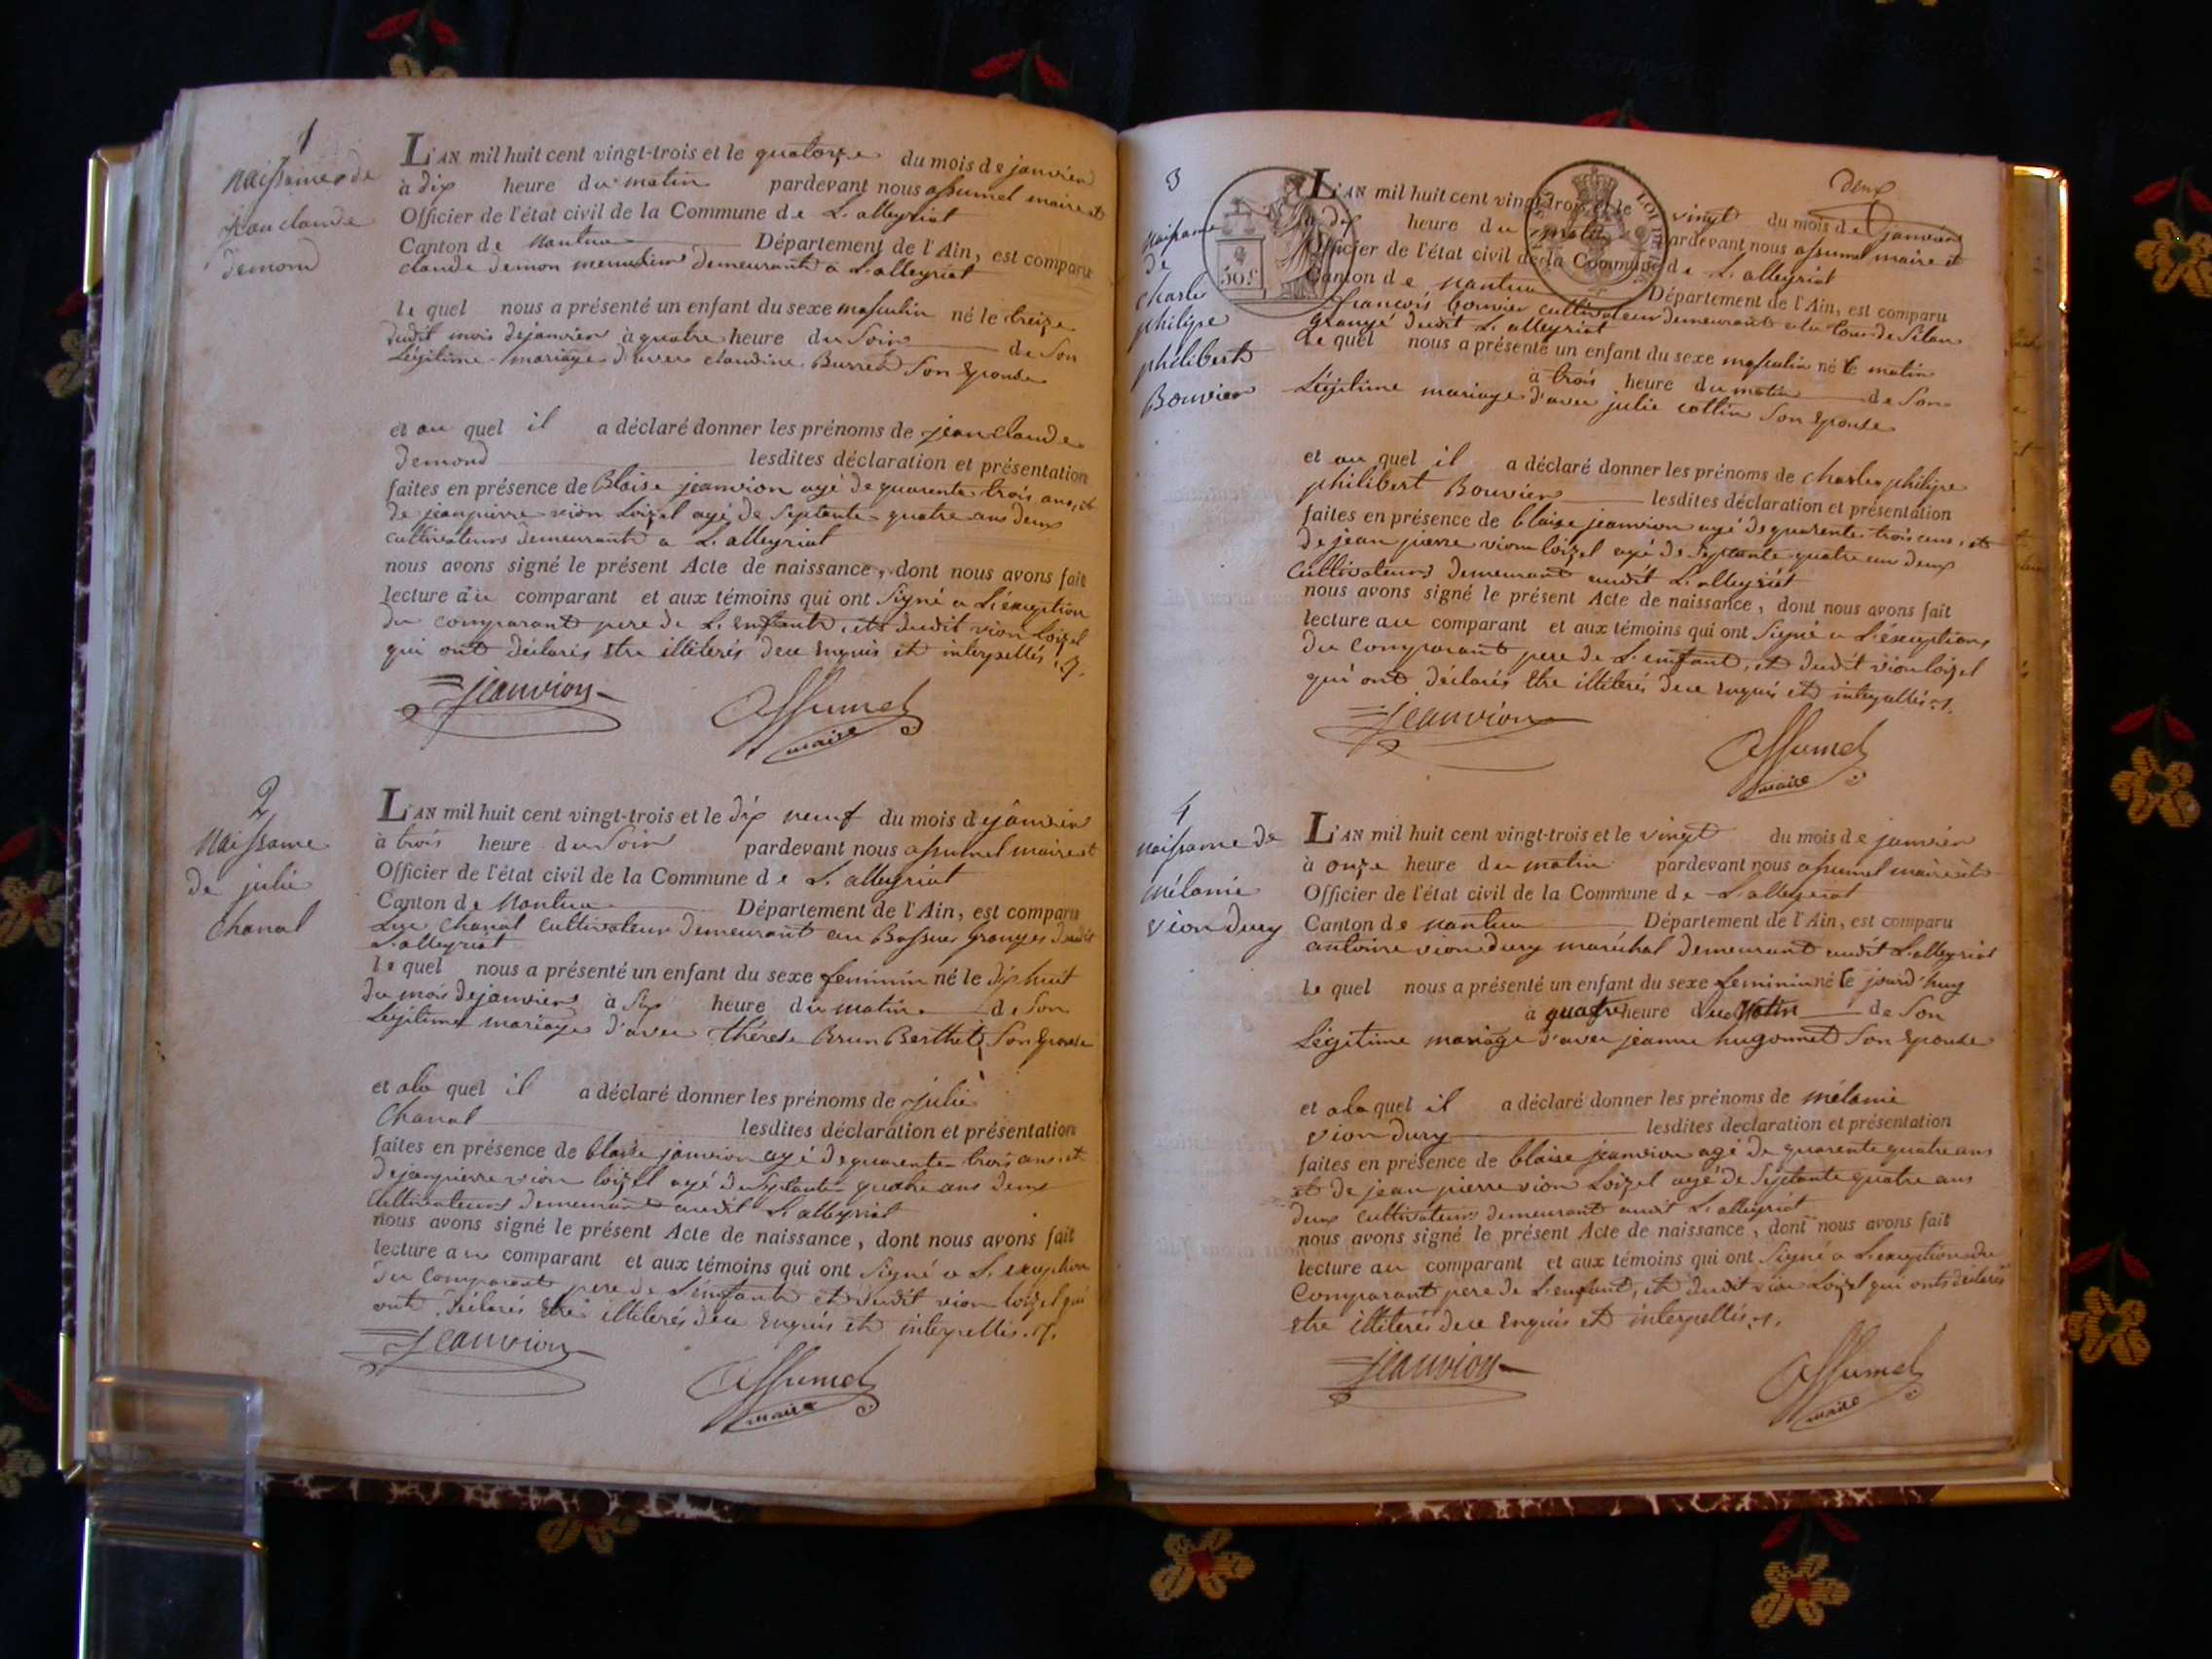 1
naissance de
jean claude
demond
L'AN mil huit cent vingt-trois et le quatorze du mois de janvier
à dix heure du matin pardevant nous assumel maire et
Officier de l'état civil de la Commune de L'alleyriat
Canton de nantua Département de l'Ain, est comparu
claude demon menusier demeurant a L'alleyriat
le quel nous a présenté un enfant du sexe masculin né le treize
dudit mois de janvier à quatre heure du Soir de Son
Légitime mariage d'avec claudine Burred Son Epouse
et au quel il a déclaré donner les prénoms de jean claude
demond lesdites déclaration et présentation
faites en présence de Blaise jeanvion agé de quarente trois ans, et
de jean pierre vion Loizel agé de Septante quatre ans deux
cultivateurs demeurant a L'alleyriat
nous avons signé le présent Acte de naissance, dont nous avons fait
lecture au comparant et aux témoins qui ont Signé a L'éxception
du comparant pere de L'enfant, et dudit vion Loizel
qui ont déclarés Etre illiterés de ce Enquis et interpellés
jeanvion
assumel
maire
2
naissance
de julie
chanal
L'AN mil huit cent vingt-trois et le dix neuf du mois de janvier
à trois heure du Soir pardevant nous assumel maire et
Officier de l'état civil de la Commune de L'alleyriat
Canton de Nantua Département de l'Ain, est comparu
Luc chanal cultivateur demeurant au granges dudit
L'alleyriat
le quel nous a présenté un enfant du sexe feminin né le dix huit
du mois de janvier à Six heure du matin de Son
Légitime mariage d'avec thérese Brun Berthet Son Epouse
et a la quel il a déclaré donner les prénoms de julie
chanal lesdites déclaration et présentation
faites en présence de blaise janvion agé de quarente trois ans et
de jean pierre vion loizel agé de Septante quatre ans deux
cultivateurs demeurant audit L'alleyriat
nous avons signé le présent Acte de naissance, dont nous avons fait
lecture au comparant et aux témoins qui ont Signé a L'exception
du comparant pere de L'enfant et dudit vion loizel qui
ont déclarés Etre illiterés de ce Enquis et interpellés
jeanvion
assumel
maire
deux
3
naissance
de
charle
philipe
philibert
Bouvier
50 c.
LOI DE
L'AN mil huit cent vingt-trois et le vingt du mois de janvier
à dix heure du matin pardevant nous assumel maire et
Officier de l'état civil de la Commune de L'alleyriat
Canton de nantua Département de l'Ain, est comparu
francois bouvier cultivateur demeurant a la tour de Silan
grangé dudit L'alleyriat
le quel nous a présenté un enfant du sexe masculin né le matin
à trois heure du matin de Son
Légitime mariage d'avec julie cottin Son Epouse
et au quel il a déclaré donner les prénoms de charles philipe
philibert Bouvier lesdites déclaration et présentation
faites en présence de blaise jeanvion agé de quarente trois ans, et
de jean pierre vion loizel agé de Septante quatre ans deux
cultivateurs demeurant audit L'alleyriat
nous avons signé le présent Acte de naissance, dont nous avons fait
lecture au comparant et aux témoins qui ont Signé a L'éxception
du comparant pere de L'enfant, et dudit vion loizel
qui ont déclarés Etre illiterés de ce Enquis et interpellés
jeanvion
assumel
maire
4
naissance de
mélanie
vion dury
L'AN mil huit cent vingt-trois et le vingt du mois de janvier
à onze heure du matin pardevant nous assumel maire et
Officier de l'état civil de la Commune de L'alleyriat
Canton de nantua Département de l'Ain, est comparu
antoine vion dury maréchal demeurant audit L'alleyriat
le quel nous a présenté un enfant du sexe feminin né le jourd'huy
à quatre heure du matin de Son
Légitime mariage d'avec jeanne hugonnet Son Epouse
et a la quel il a déclaré donner les prénoms de mélanie
vion dury lesdites declaration et présentation
faites en présence de blaise jeanvion agé de quarente quatre ans
et de jean pierre vion Loizel agé de Septante quatre ans
deux cultivateurs demeurant audit L'alleyriat
nous avons signé le présent Acte de naissance, dont nous avons fait
lecture au comparant et aux témoins qui ont Signé a L'exception du
Comparant pere de L'enfant, et dudit vion Loizel qui onts déclarés
Etre illiterés de ce Enquis et interpellés
jeanvion
assumel
maire